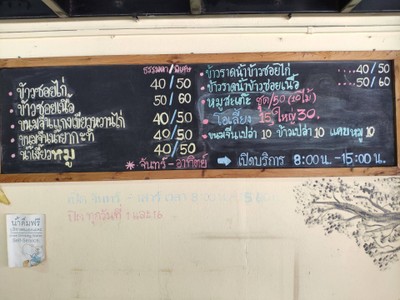 ธรรมดา/พิเศษ
ข้าวซอยไก่ 40/50
ข้าวซอยเนื้อ 50/60
ขนมจีนแกงเขียวหวานไก่ 40/50
ขนมจีนน้ำยากะทิ 40/50
ก๋วยเตี๋ยวหมู 40/50
* จันทร์ - อาทิตย์
ข้าวราดน้ำข้าวซอยไก่ ....40/50
ข้าวราดน้ำข้าวซอยเนื้อ ...50/60
หมูสะเต๊ะ ชุด/50 (10ไม้)
โอเลี้ยง 15 ใหญ่ 30.
ขนมจีนเปล่า 10 ข้าวเปล่า 10 แคบหมู 10
เปิดบริการ 8:00น.-15:00น.
ปิด ทุกวันที่ 1 และ 16
น้ำดื่มฟรี